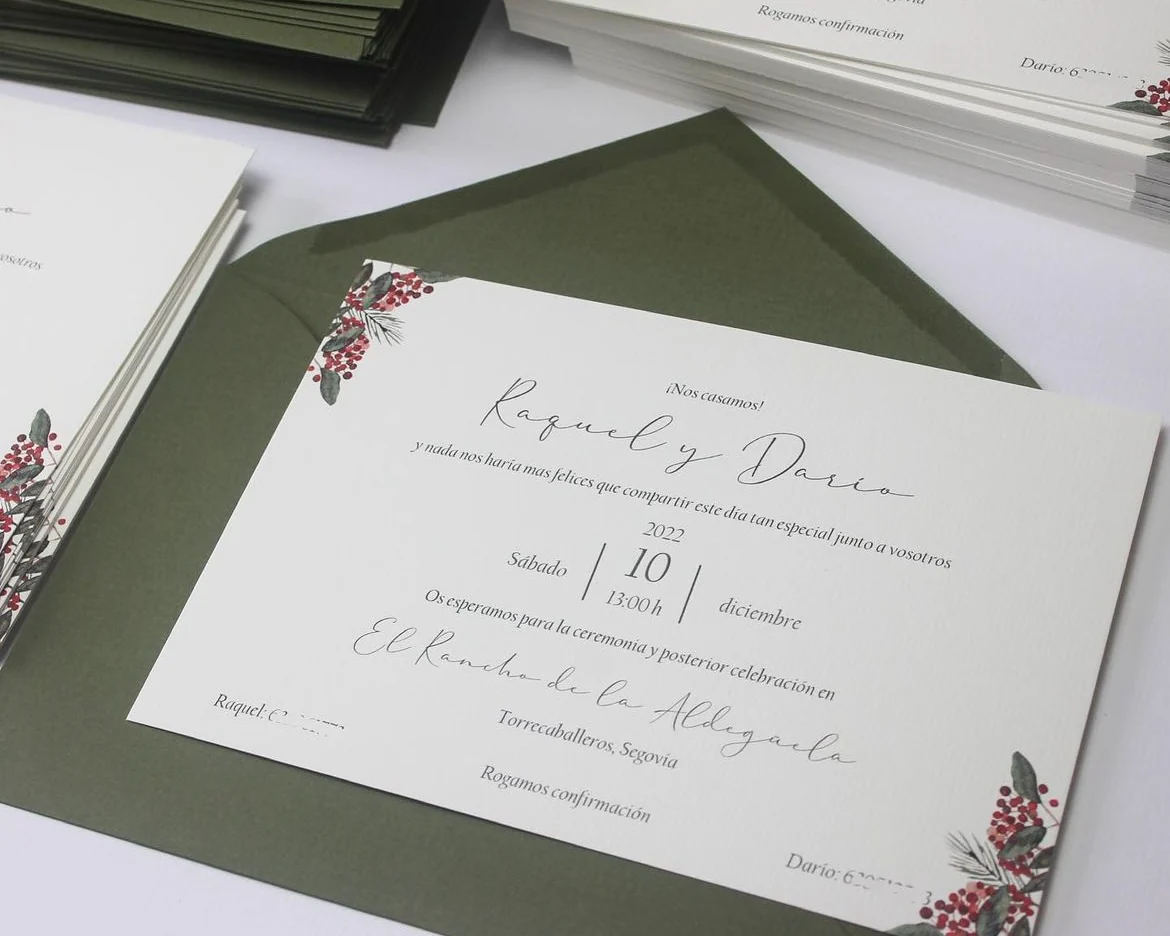 Rogamos confirmación
Darío:
¡Nos casamos!
Raquel y Darío
y nada nos haría mas felices que compartir este día tan especial junto a vosotros
2022
Sábado 10 diciembre
13:00 h
Os esperamos para la ceremonia y posterior celebración en
El Rancho de la Aldegüela
Torrecaballeros, Segovia
Rogamos confirmación
Raquel:
Darío: